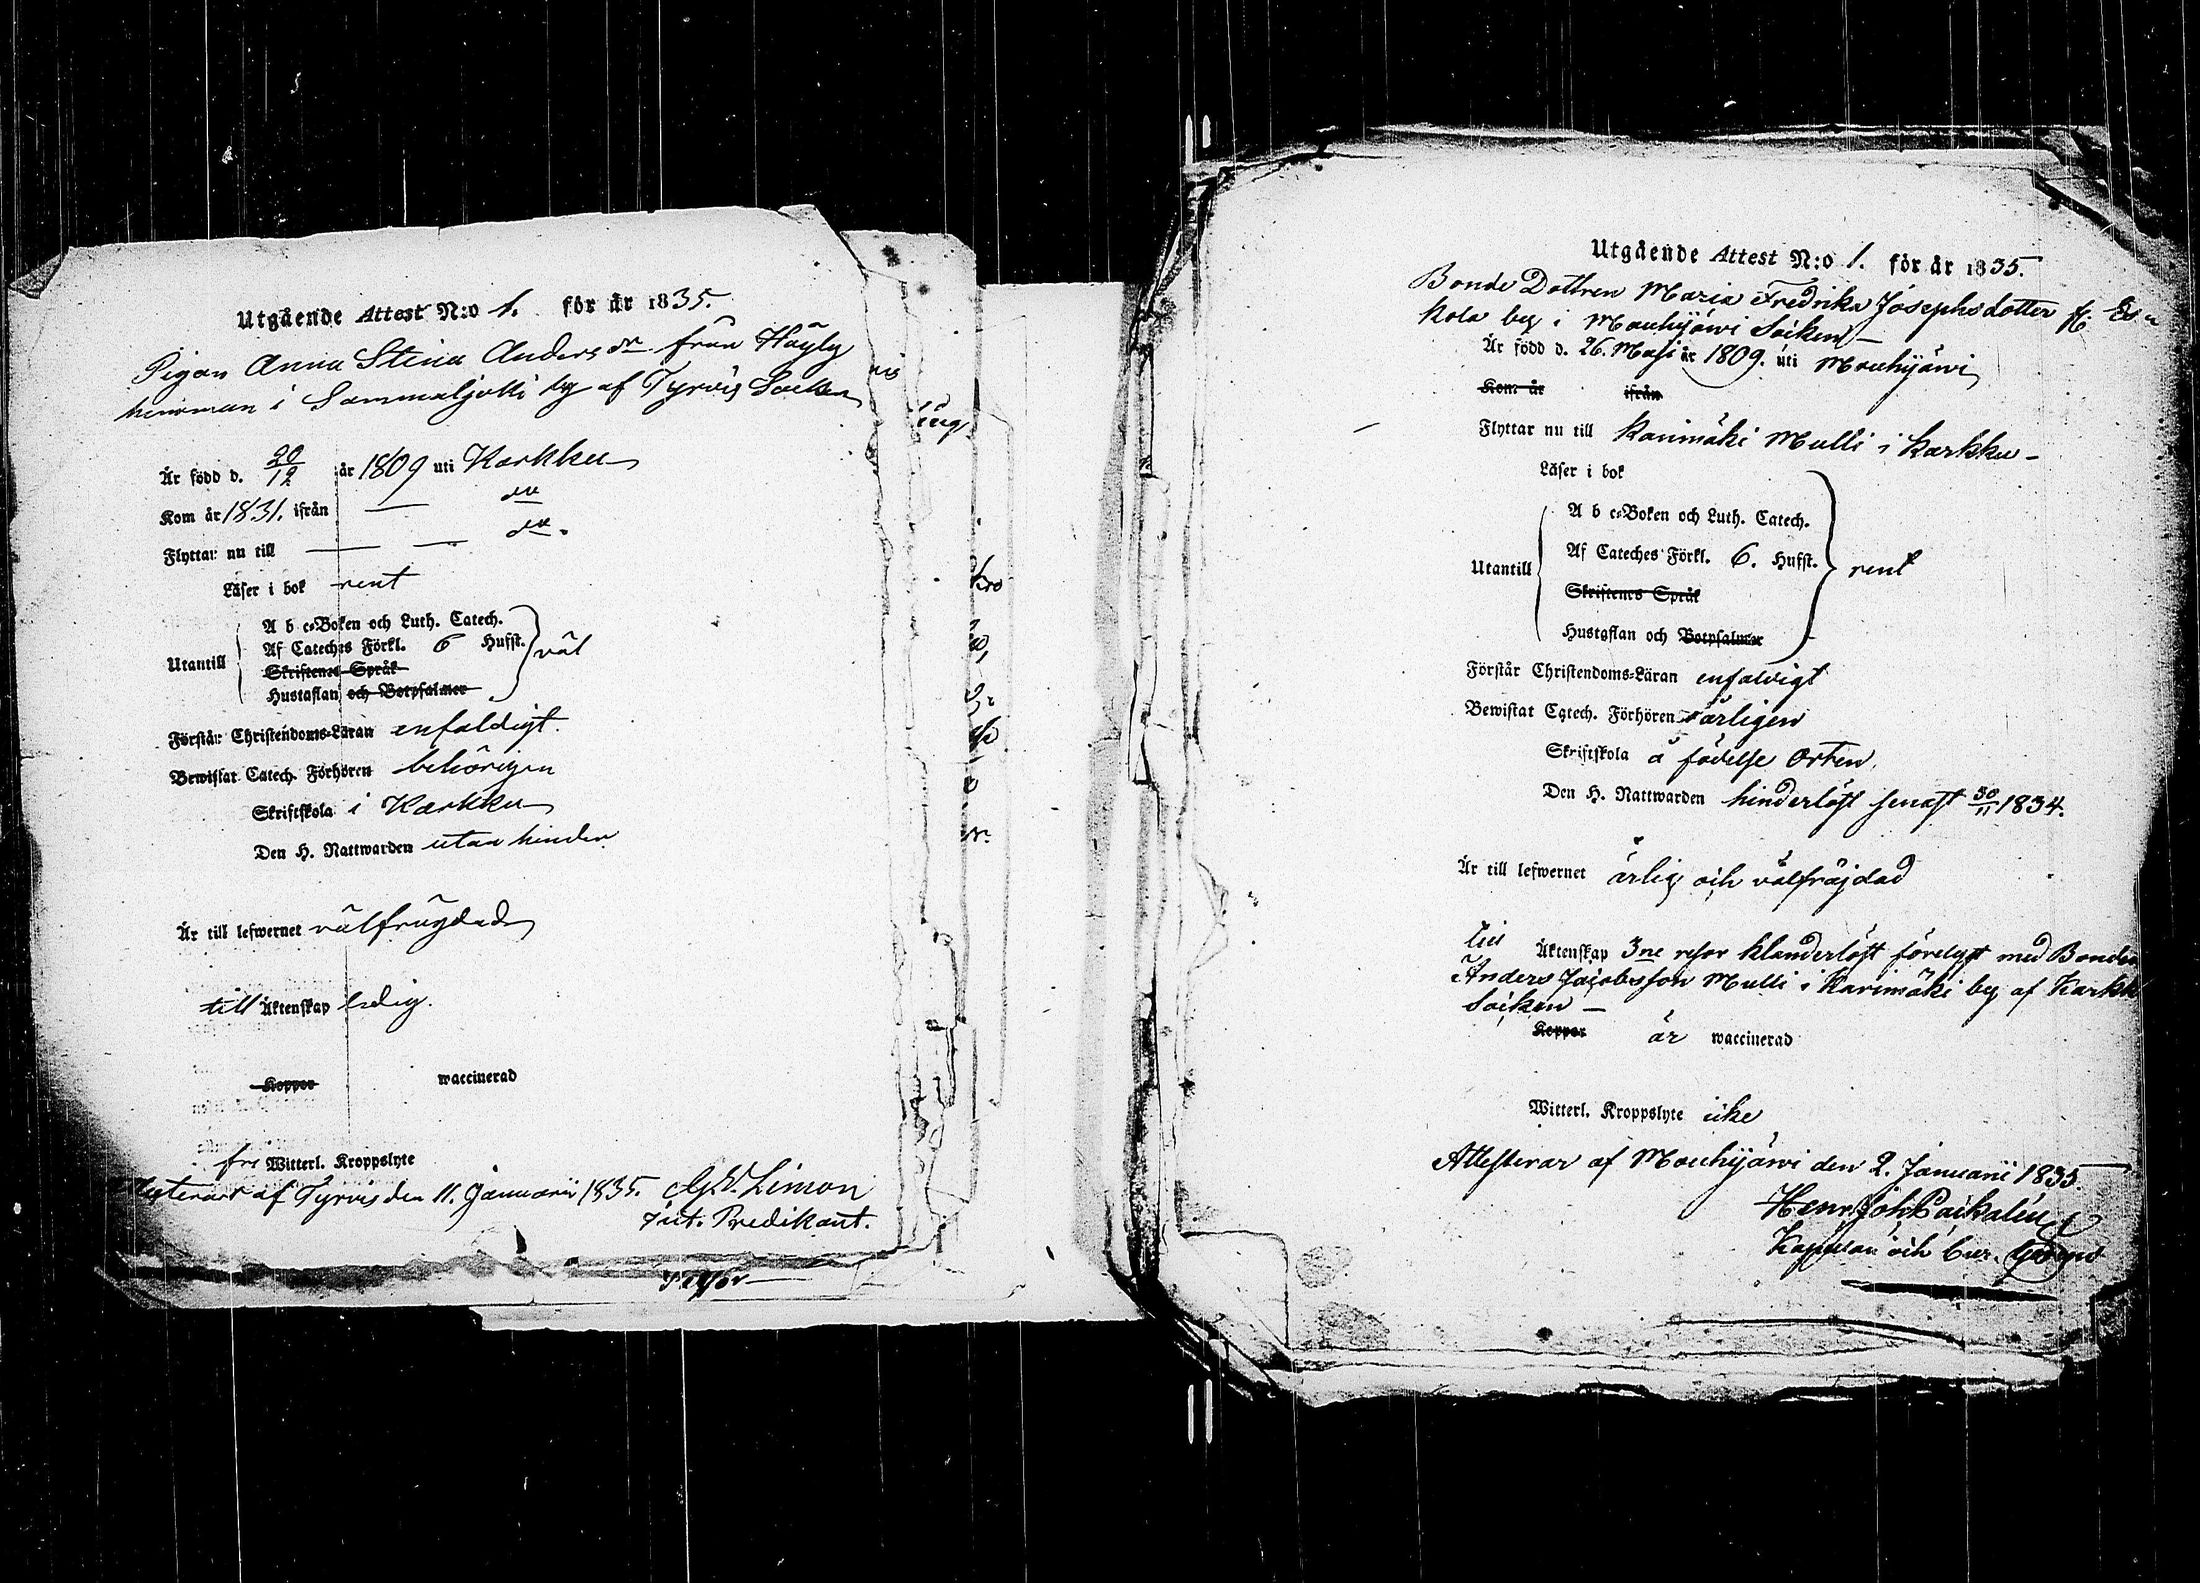 Utgående Attest N:o 1. för år 1835.
Pigan Anna Stina Anders dr från
i Sammaljoki by af Tyrvis Socken
Är född d. 20/12 år 1809 uti Karkku
Kom år 1831. ifrån — do
Flyttar nu till — — do.
Läser i bok rent
A b c-Boken och Luth. Catech.
Af Cateches Förkl. 6 Hufst.
Utantill väl
Skriftenes Språk
Hustaflan och Botpsalmer
Förstår Christendoms-Läran enfaldigt.
Bewistat Catech. Förhören behörigen
Skriftskola i Karkku
Den H. Nattwarden utan hinder
Är till lefwernet välfrägdad
till Äktenskap ledig.
Koppor waccinerad
fri Witterl. Kroppslyte
af Tyrvis den 11. Januarii 1835. Limon
Predikant.
Utgående Attest N:o 1. för år 1835.
Bonde Dottren Maria Fredrika Josephsdotter
kola by i Mouhijärvi Socken —
Är född d. 26. Maji år 1809. uti Mouhijärvi
Kom år ifrån
Flyttar nu till Karimäki Mulli i Karkku —
Läser i bok
A b c-Boken och Luth. Catech.
Af Cateches Förkl. 6. Hufst.
Utantill rent
Skriftenes Språk
Hustaflan och Botpsalmer
Förstår Christendoms-Läran enfaldigt
Bewistat Catech. Förhören årligen
Skriftskola å födelse Orten
Den H. Nattwarden hinderlöst senast 30/11 1834.
Är till lefwernet ärlig och välfräjdad
till Äktenskap 3ne resor klanderlöst förelyst med Bonden
Anders Jacobsson Mulli i Karimäki by af Karkk
Socken —
Koppor är waccinerad
Witterl. Kroppslyte icke
Attesterar af Mouhijärvi den 2. Januarii 1835.
Henr. Joh.
Kappelan och Cur.